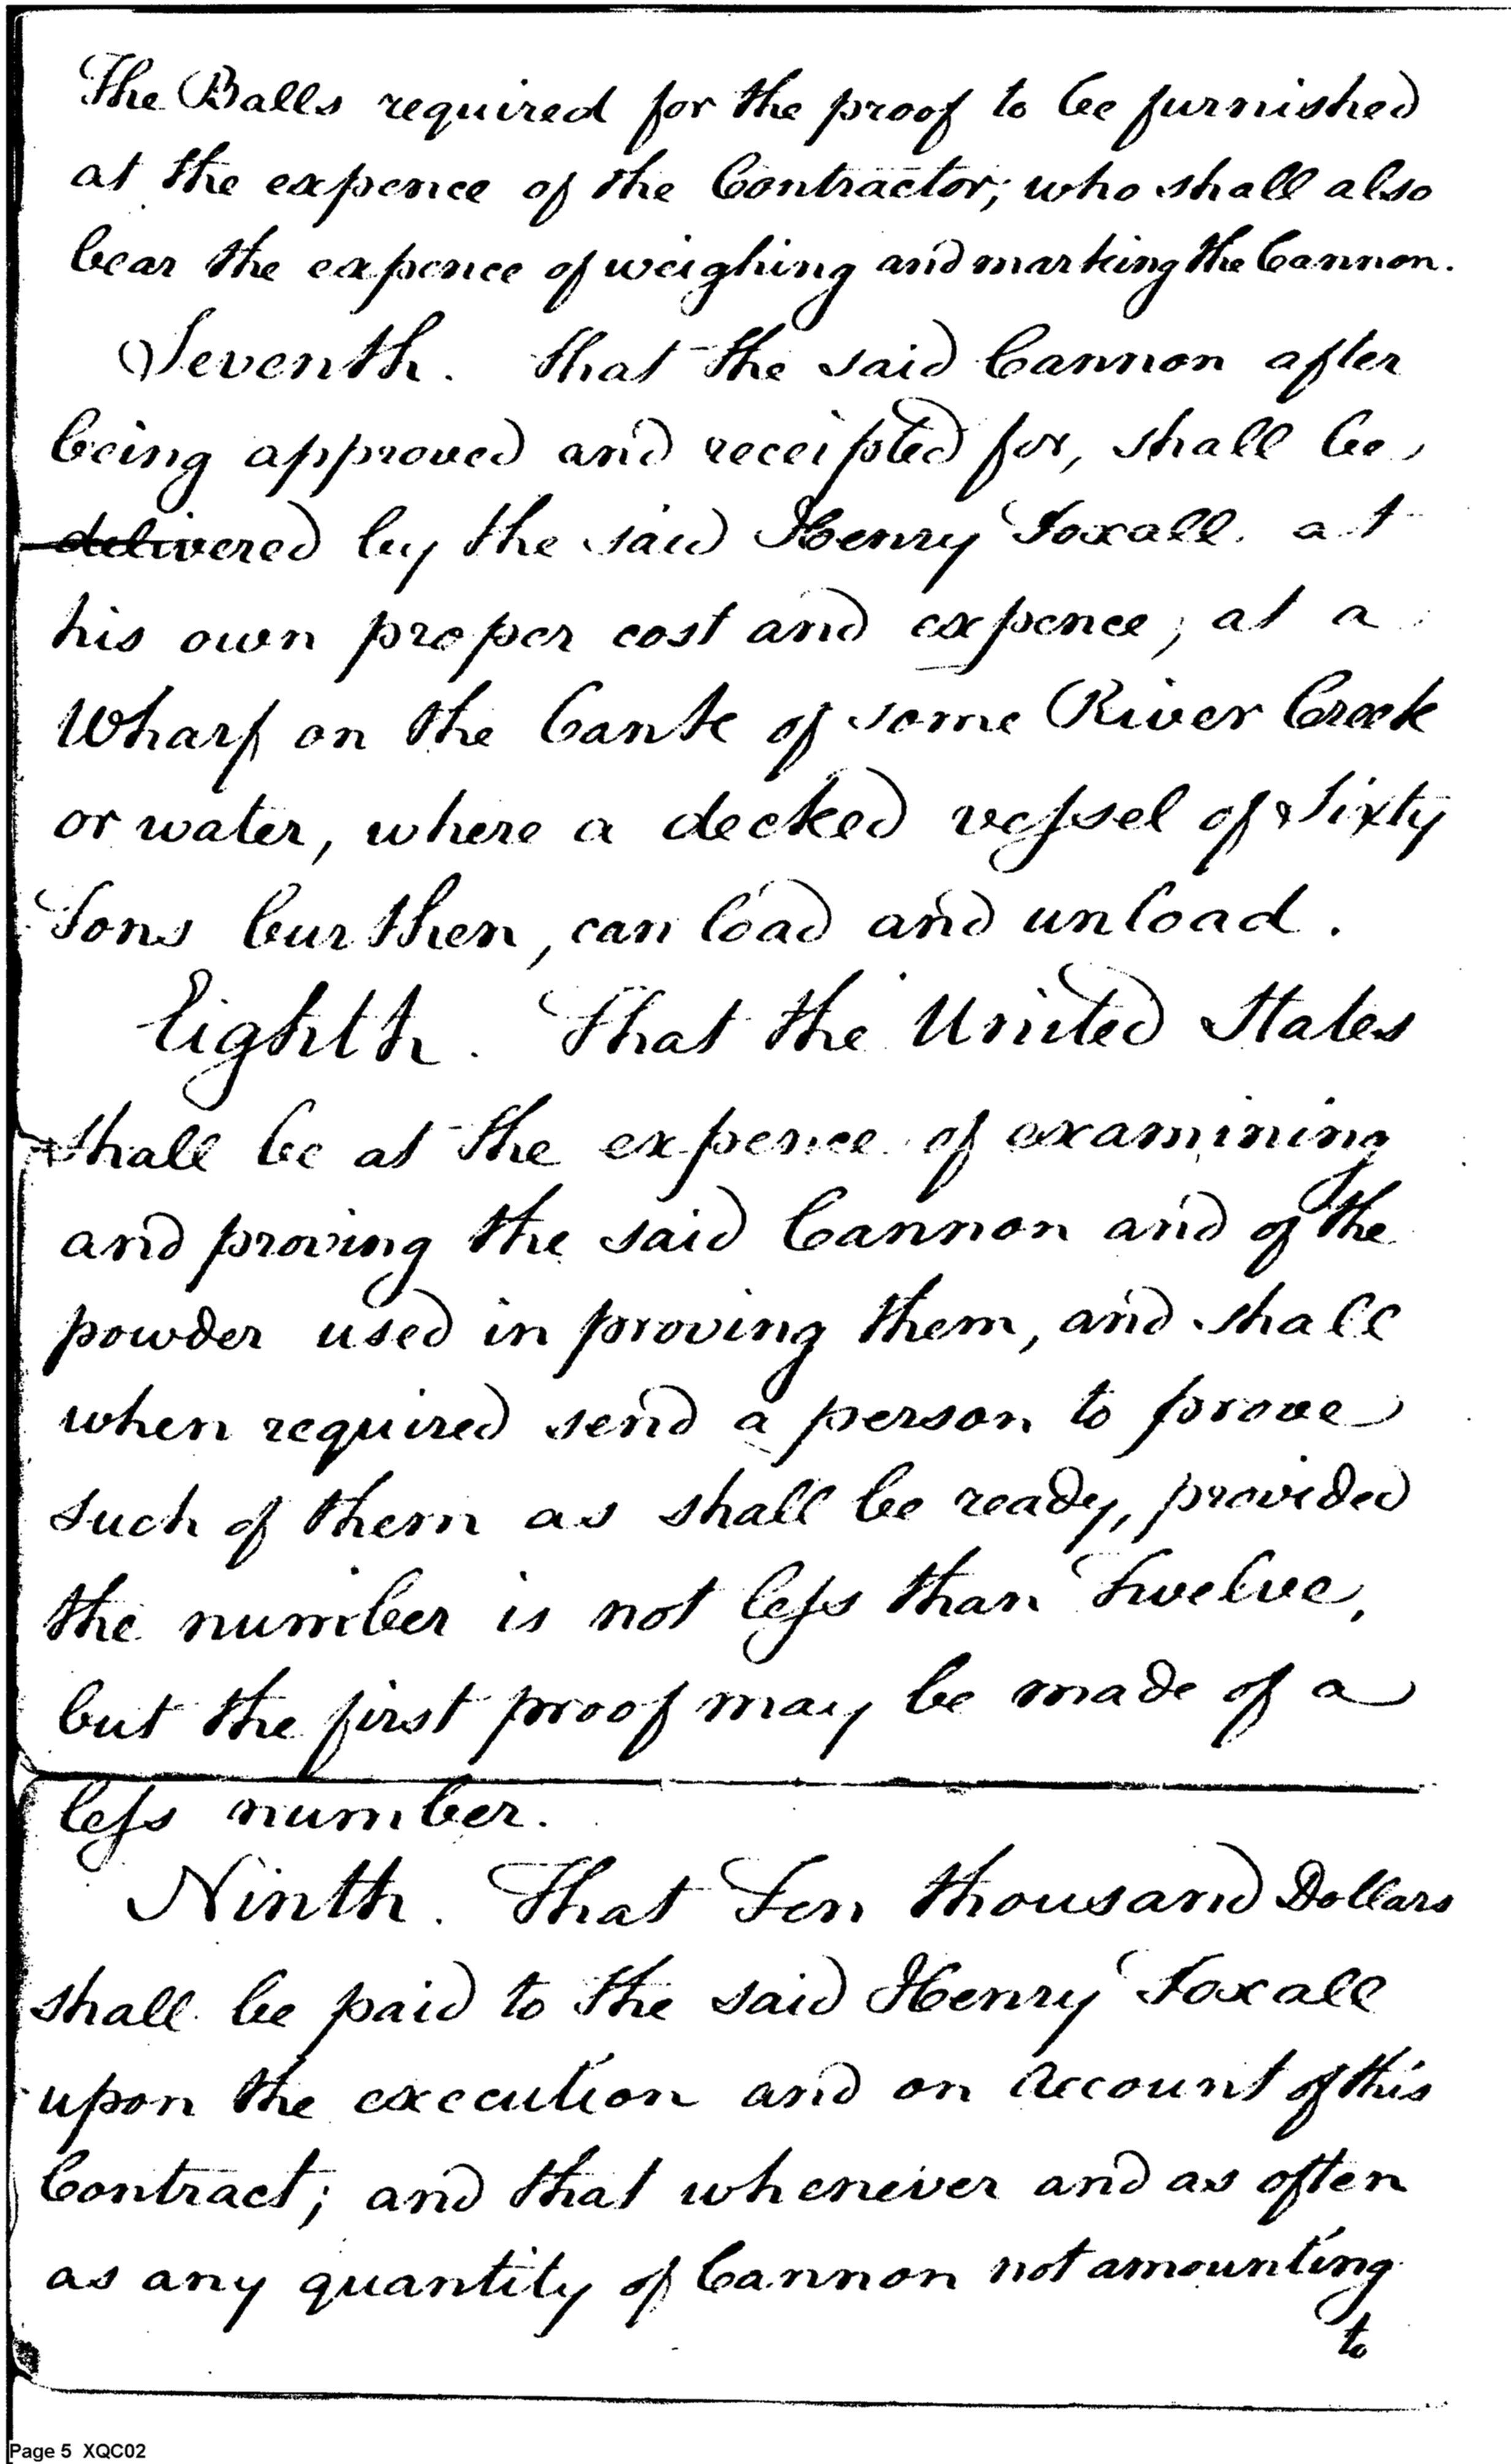 The Balls required for the proof to be furnished
at the expence of the Contractor; who shall also
bear the expence of weighing and marking the Cannon.
Seventh. That the said Cannon after
being approved and receipted for, shall be
delivered by the said Henry Foxall at
his own proper cost and expence, at a
Wharf on the bank of some River Creek
or water, where a decked vessel of Sixty
Tons burthen, can load and unload.
Eighth. That the United States
shall be at the expence of examining
and proving the said Cannon and of the
powder used in proving them, and shall
when required send a person to prove
such of them as shall be ready, provided
the number is not less than Twelve,
but the first proof may be made of a
less number.
Ninth. That Ten thousand Dollars
shall be paid to the said Henry Foxall
upon the execution and on Account of this
Contract; and that whenever and as often
as any quantity of Cannon not amounting
to
Page 5 XQC02